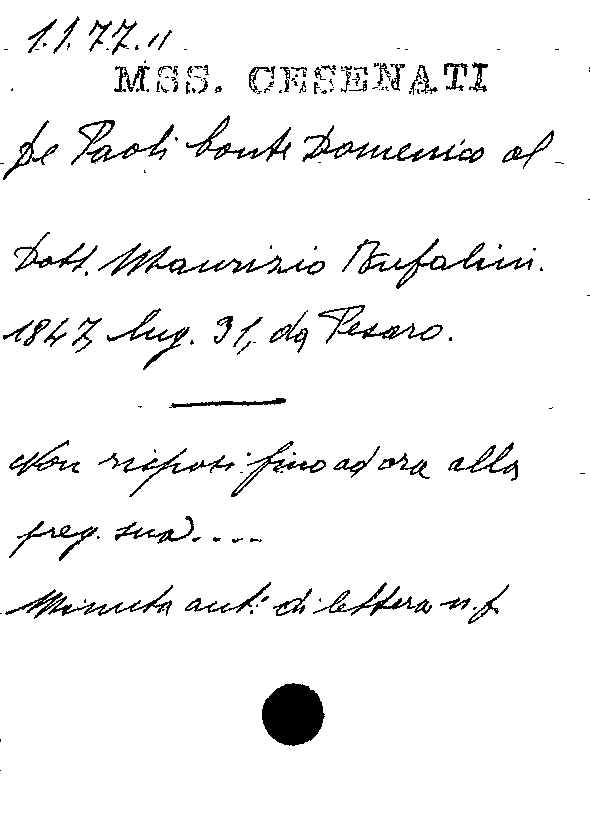 1.1.77.11
MSS. CESENATI
De Paoli Conte Domenico al
Dott. Maurizio Bufalini.
1847, lug. 31, da Pesaro.
Non risposi fino ad ora alla
preg. sua....
Minuta aut. di lettera n.f.